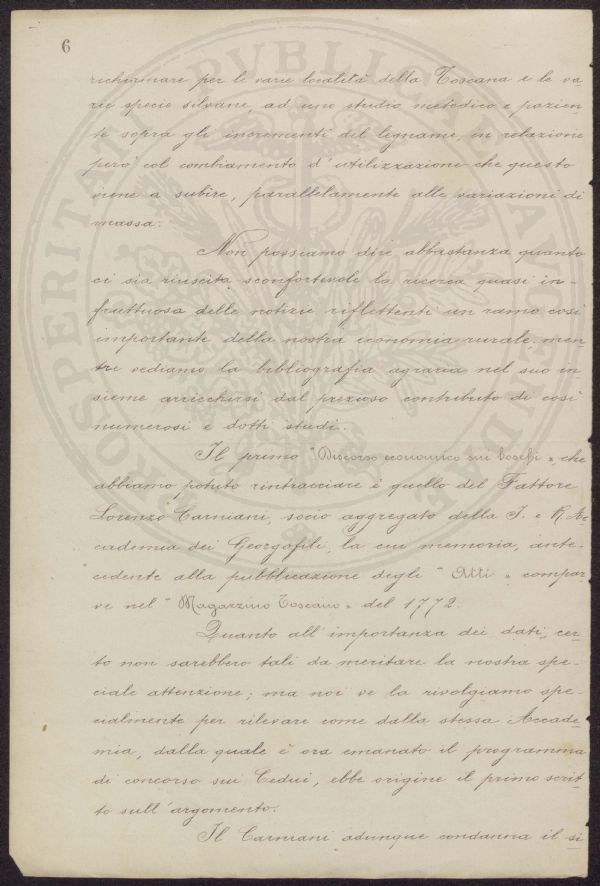 6
richiamare per le varie località della Toscana e le va-
rie specie silvane, ad uno studio metodico e pazien-
te sopra gli incrementi del legname, in relazione
però col cambiamento d'utilizzazione che questo
viene a subire, parallelamente alle variazioni di
massa.
Non possiamo dire abbastanza quanto
ci sia riuscita sconfortevole la ricerca quasi in-
fruttuosa delle notizie riflettenti un ramo così
importante della nostra economia rurale, men-
tre vediamo la bibliografia agraria nel suo in-
sieme arricchirsi dal prezioso contributo di così
numerosi e dotti studi.
Il primo "Discorso economico sui boschi", che
abbiamo potuto rintracciare è quello del Fattore
Lorenzo Carniani, socio aggregato della I. e R. Ac-
cademia dei Georgofili, la cui memoria, ante-
cedente alla pubblicazione degli "Atti" compar-
ve nel "Magazzino Toscano" del 1772.
Quanto all'importanza dei dati, cer-
to non sarebbero tali da meritare la nostra spe-
ciale attenzione; ma noi ve la rivolgiamo spe-
cialmente per rilevare come dalla stessa Accade-
mia, dalla quale è ora emanato il programma
di concorso sui Cedui, ebbe origine il primo scrit-
to sull'argomento.
Il Carniani adunque condanna il si-
PROSPERITATI PUBLICAE AUGENDAE